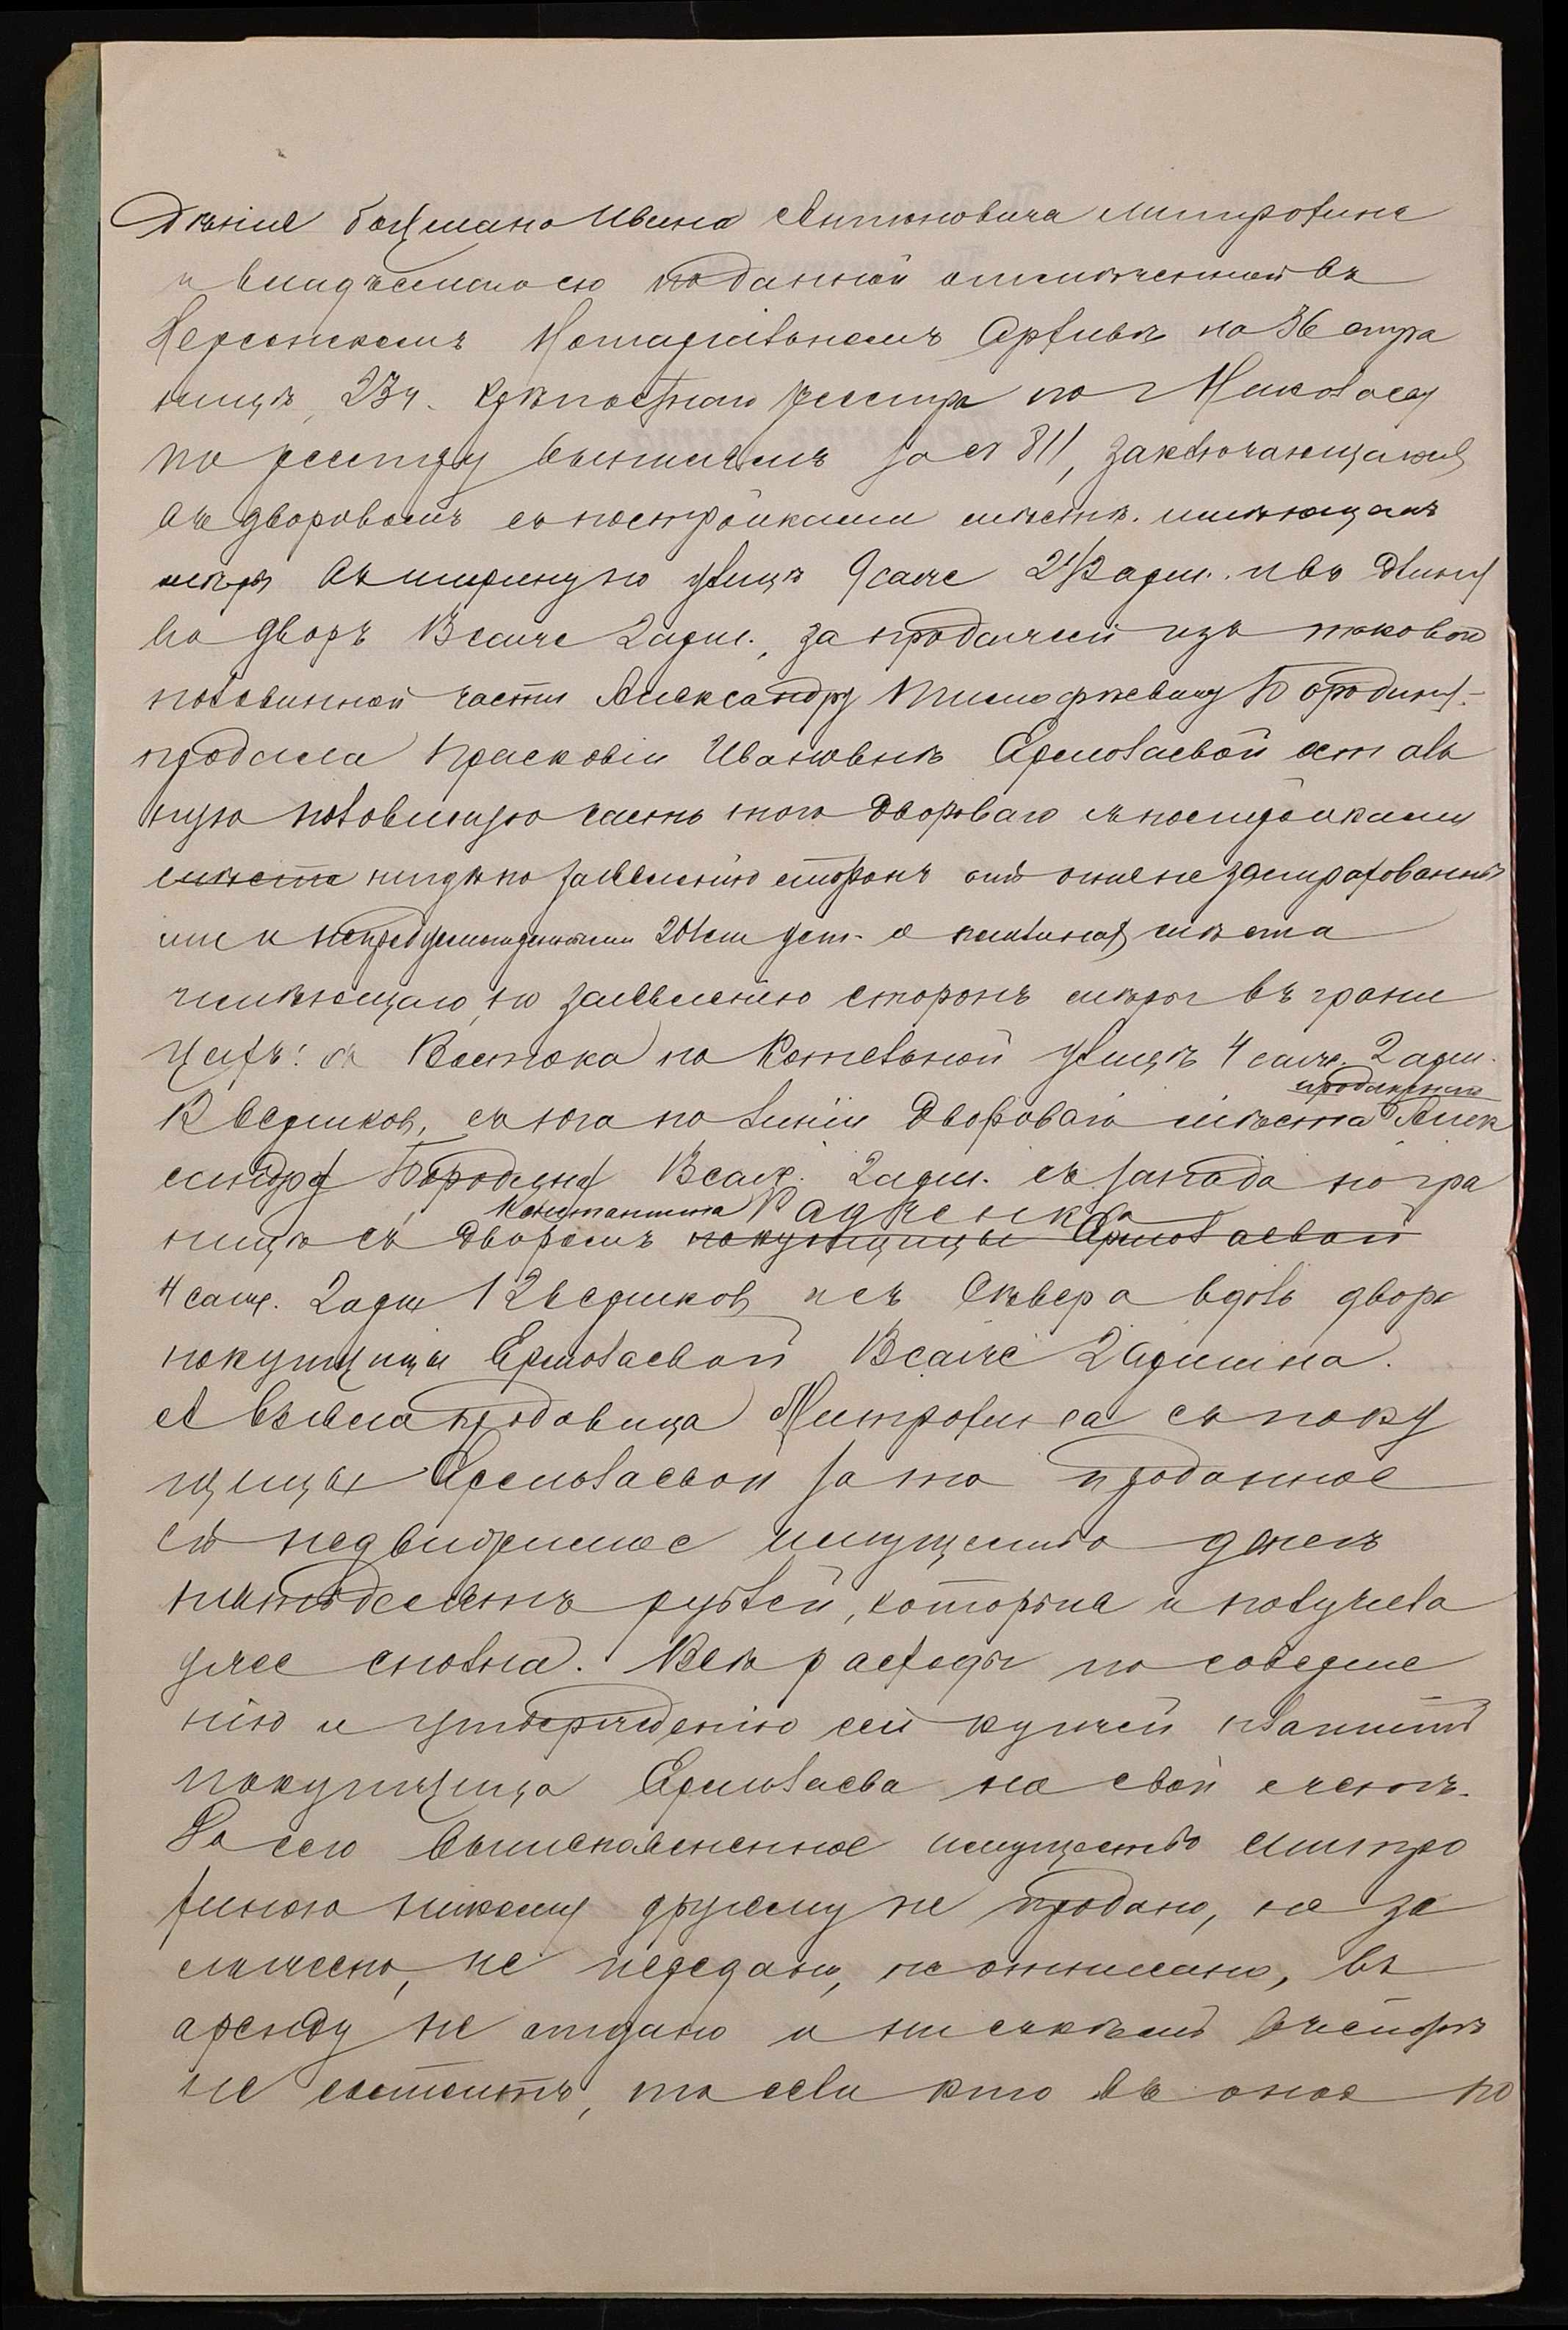 дѣніе боцмана Ивана Антоновича Митрофина
и владѣемаго ею по данной отмѣченной въ
Херсонскомъ Нотаріальномъ Архивѣ на 36 стра
ницѣ, 23 ч. крѣпостнаго реестра по г. Николаеву
по реестру бывшемъ за № 811, заключающимся
въ дворовомъ съ постройками мѣстѣ. имѣющемъ
мѣры въ ширину по улицѣ 9 саж 2 1/2 арш. и въ длину
во дворъ 13 саж 2 арш., за продажей изъ таковой
половинной части Александру Тимофеевичу Бородину.-
продала Прасковіи Ивановнѣ Ермолаевой осталь
ную половинную часть того двороваго съ постройками
мѣста нигдѣ по заявленію сторонъ
ми и непредъ 201 ст уст. о мѣста
имѣющаго, по заявленію сторонъ мѣры въ грани
цахъ: съ Востока по Котельной улицѣ 4 саж. 2 арш.
проданнаго
12 вершковъ, съ юга по линіи двороваго мѣста Алек
сандру Бородину 13 саж. 2 арш. съ запада по гра
Константина Радченка
ницѣ съ дворомъ покупщицы Ермолаевой
4 саж. 2 арш 12 вершковъ и съ Сѣвера вдоль двора
покупщицы Ермолаевой 13 саж 2 аршина.
А взяла продавица Митрофина съ поку
пщицы Ермолаевой за то проданное
ей недвижимое имущество денегъ
пятьдесятъ рублей, которыя и получила
уже сполна. Всѣ расходы по соверше
нію и утвержденію сей купчей платитъ
покупщица Ермолаева на свой счетъ.
До сего вышепоясненное имущество Митро
финою никому другому не продано, не за
ложено, не передано, не описано, въ
аренду не отдано и ни съ кѣмъ въ спорѣ
не состоитъ, то если кто въ оное по